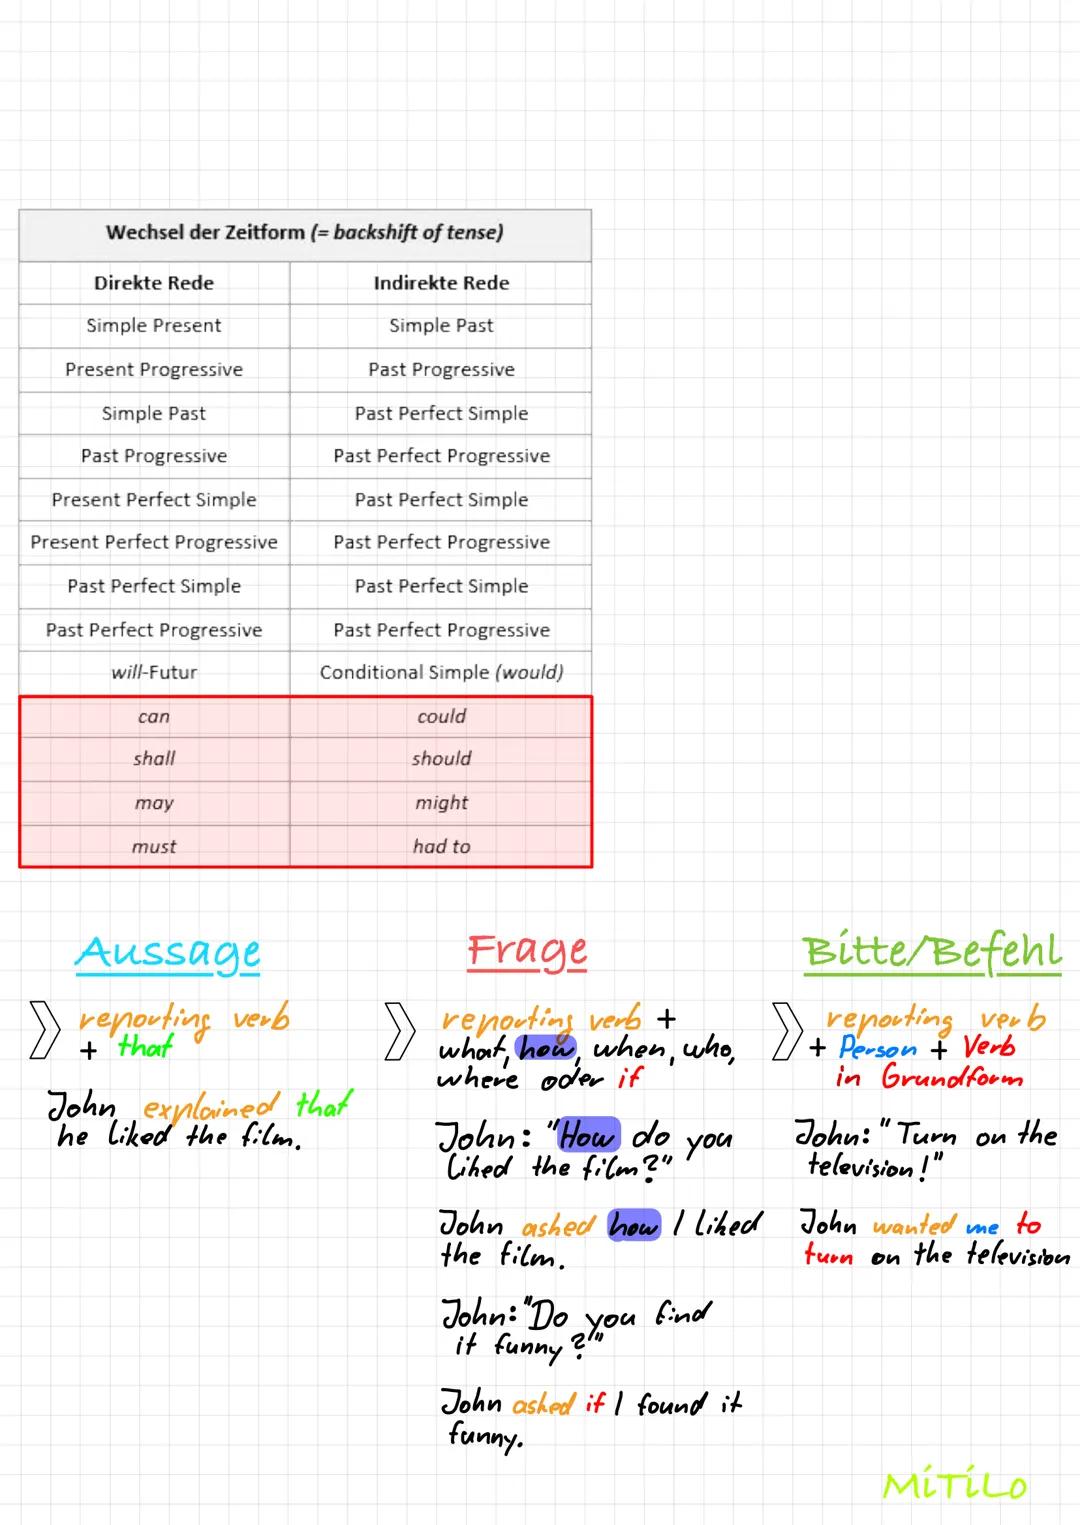 Wechsel der Zeitform (= backshift of tense)
Direkte Rede Indirekte Rede
Simple Present Simple Past
Present Progressive Past Progressive
Simple Past Past Perfect Simple
Past Progressive Past Perfect Progressive
Present Perfect Simple Past Perfect Simple
Present Perfect Progressive Past Perfect Progressive
Past Perfect Simple Past Perfect Simple
Past Perfect Progressive Past Perfect Progressive
will-Futur Conditional Simple (would)
can could
shall should
may might
must had to
Aussage
reporting verb
+ that
John explained that
he liked the film.
Frage
reporting verb +
what, how, when, who,
where oder if
John: "How do you
liked the film?"
John asked how I liked
the film.
John: "Do you find
it funny?"
John asked if I found it
funny.
Bitte/Befehl
reporting verb
+ Person + Verb
in Grundform
John: "Turn on the
television!"
John wanted me to
turn on the television
MiTiLo